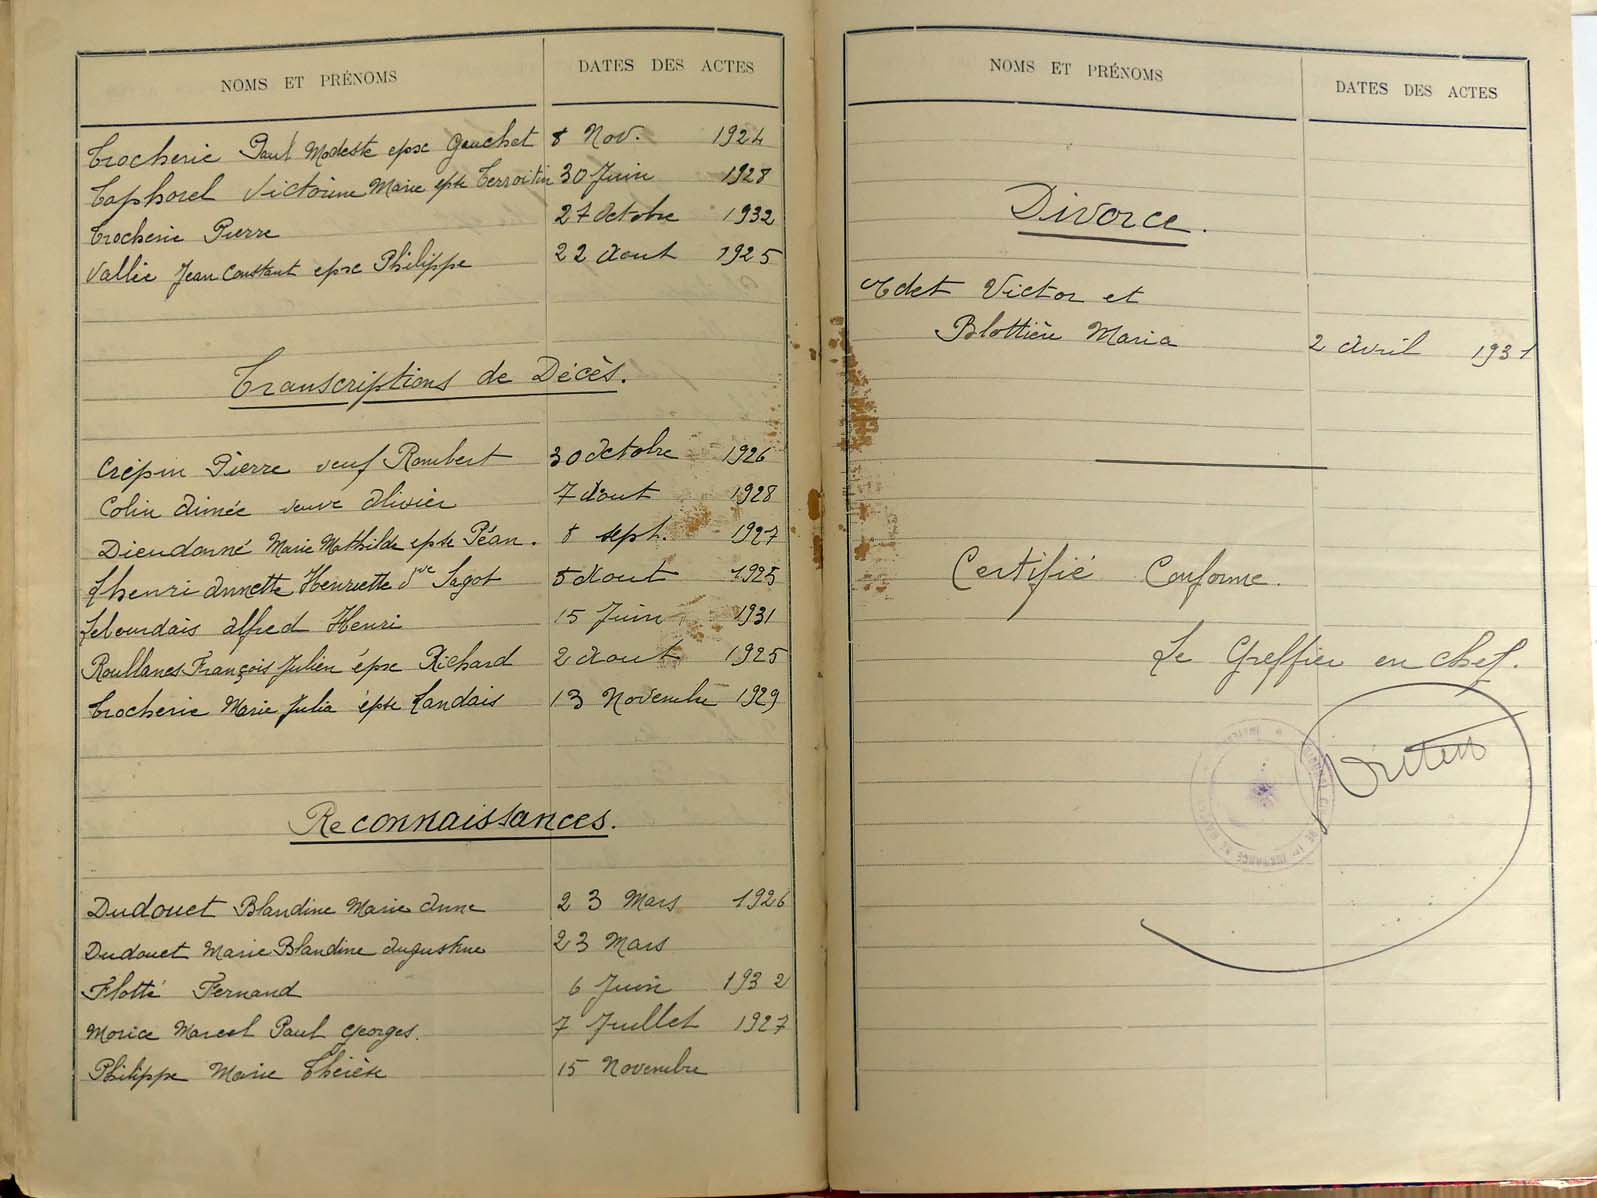 NOMS ET PRÉNOMS DATES DES ACTES
Trocherie Paul Modeste epse Gauchet 8 Nov. 1924
Taphorel Victorine Marie epse Terroitin 30 Juin 1928
Trocherie Pierre 27 Octobre 1932
Vallée Jean Constant epse Philippe 22 Aout 1925
Transcriptions de Décès.
Crépin Pierre veuf Rombert 30 Octobre 1926
Colin Aimée veuve Olivier 7 Aout 1928
Dieudonné Marie Mathilde epse Péan. 8 sept. 1927
Lhenri Annette Henriette Vve Sagot 5 Aout 1925
Lebourdais Alfred Henri 15 Juin 1931
Roullanes François Julien épse Richard 2 Aout 1925
Trocherie Marie Julia épse Landais 13 Novembre 1929
Reconnaissances.
Dudouet Blandine Marie Anne 23 Mars 1926
Dudouet Marie Blandine Augustine 23 Mars
Flotté Fernand 6 Juin 1932
Morice Marcel Paul Georges. 7 Juillet 1927
Philippe Marie Thérèse 15 Novembre
NOMS ET PRÉNOMS DATES DES ACTES
Divorce.
Edet Victor et
Blottière Maria 2 Avril 1931
Certifié Conforme.
Le Greffier en chef.